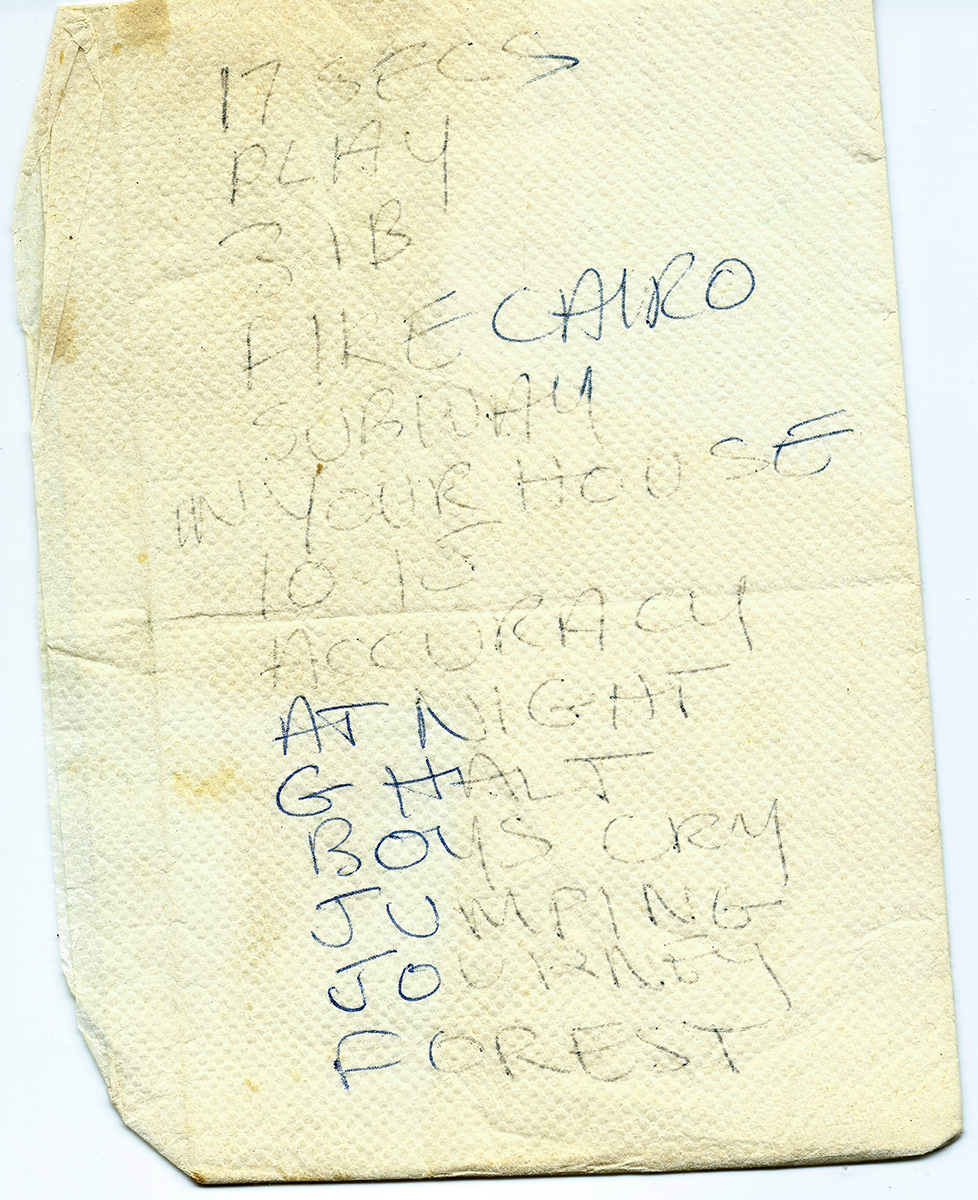 17 SECS
PLAY
3 IB
FIRE CAIRO
SUBWAY
IN YOUR HOUSE
10 15
ACCURACY
AT NIGHT
G HALT
BOYS CRY
JUMPING
JOURNEY
FOREST